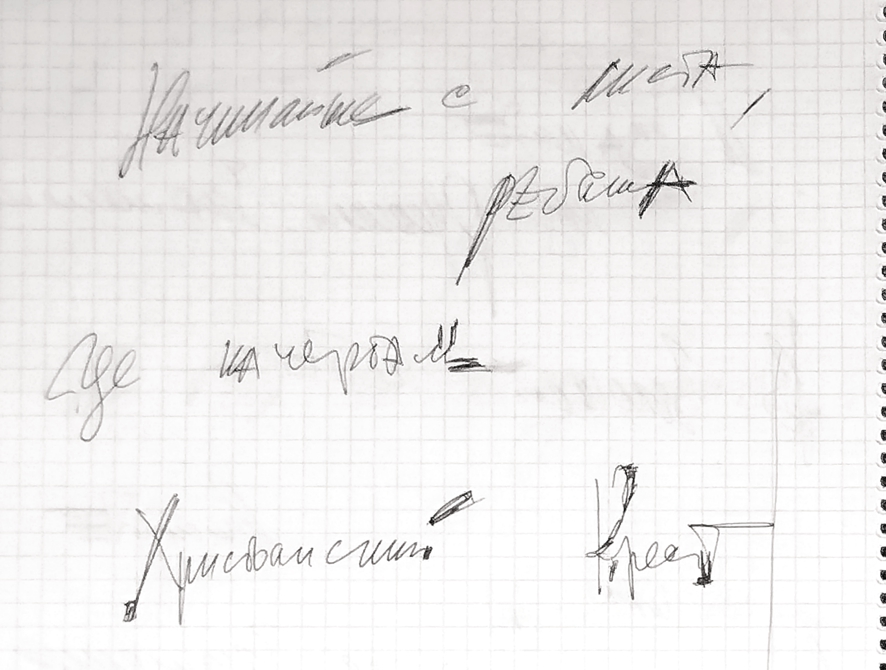 Начинайте с листа,
ребята
Где начертан
Христианский Крест